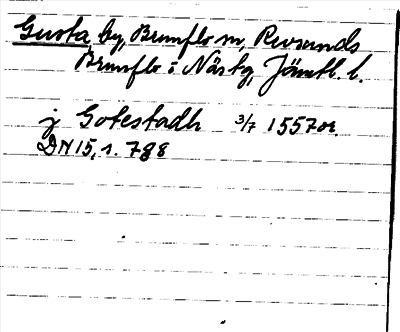 Gusta, by, Brunflo sn, Revsunds
Brunflo o Näs tg, Jämtl. l.
j Gotestadh 3/7 1557 or.
DN 15, s. 788